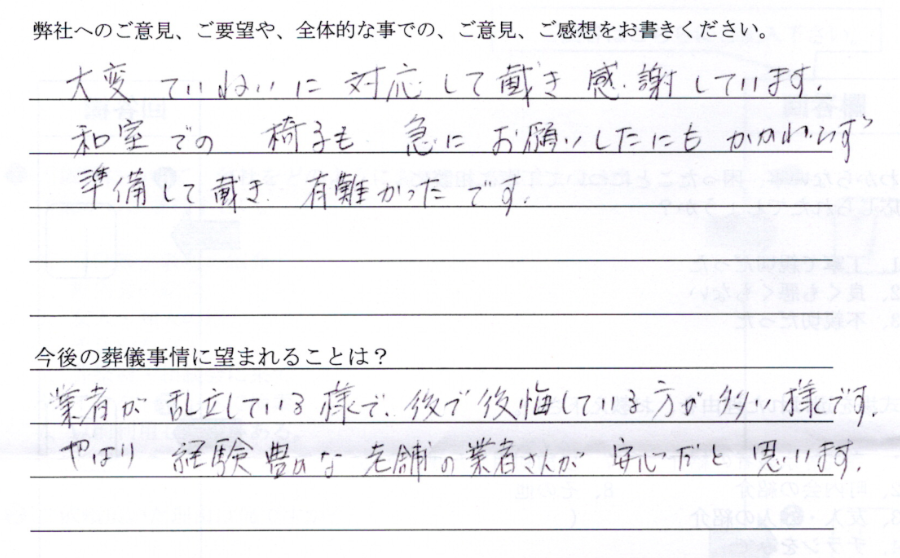 弊社へのご意見、ご要望や、全体的な事での、ご意見、ご感想をお書きください。
大変ていねいに対応して戴き感謝しています。
和室での椅子も急にお願いしたにもかかわらず
準備して戴き、有難かったです。
今後の葬儀事情に望まれることは？
業者が乱立している様で、後で後悔している方が多い様です。
やはり経験豊かな老舗の業者さんが安心だと思います。